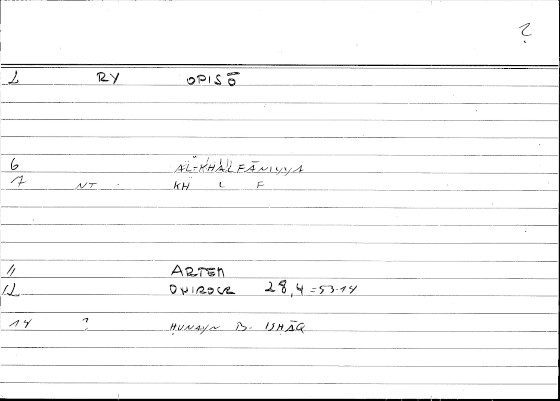 ?
2 RY OPISŌ
6 AL-KHALFĀNIYYA
7 NT KH L F
11 ARTEM
12 ONIROCR 28,4=53.14
14 ? ḤUNAYN B. ISḤĀQ